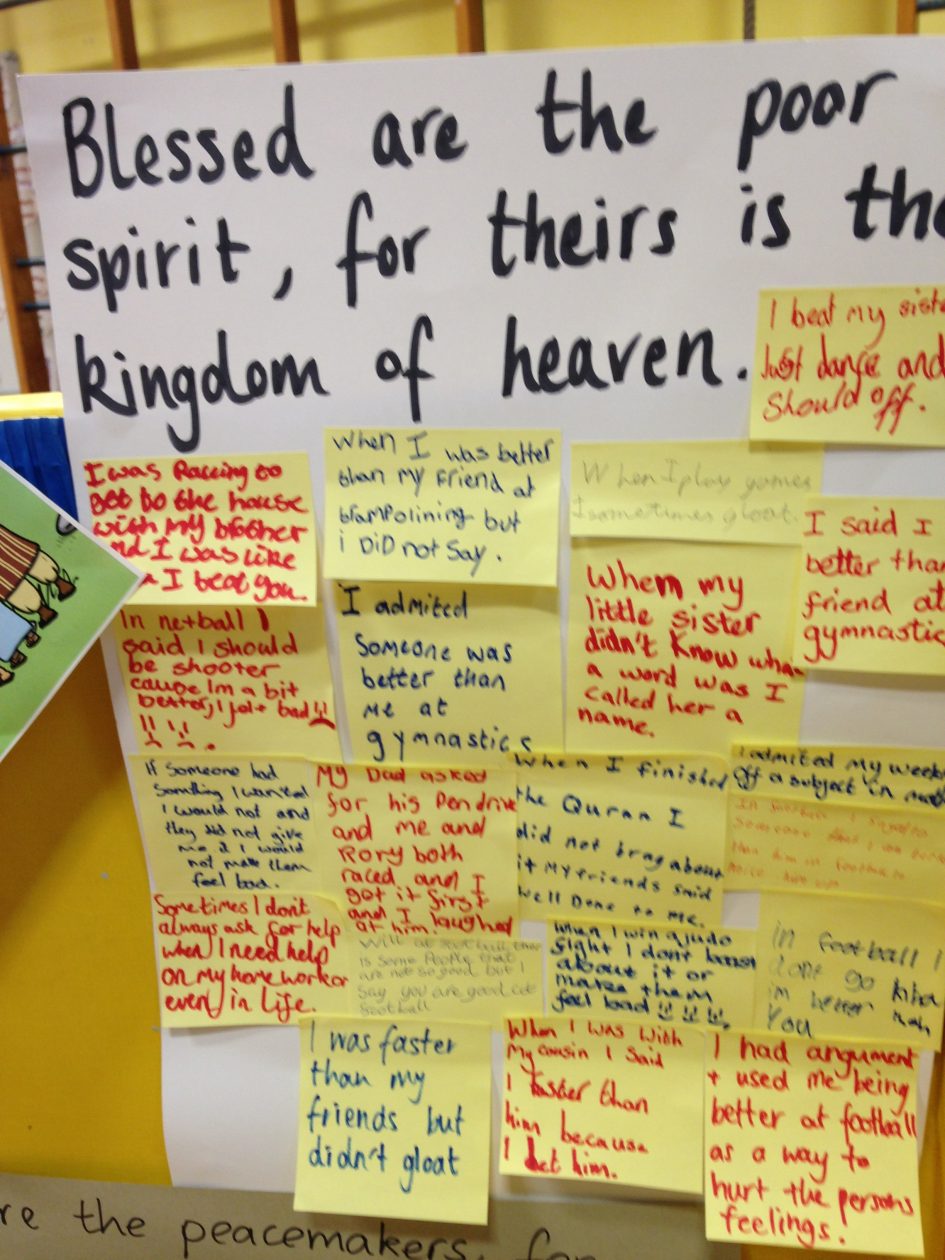 Blessed are the poor
spirit, for theirs is the
kingdom of heaven.
I beat my siste
Just dance and
Should off.
I was Raccing to
get to the house
with my brother
and I was like
I beat you.
When I was better
than my friend at
trampolining but
i DiD not say.
When I play games
I sometimes gloat.
I said I
better than
friend at
gymnastic
In netball I
said I should
be shooter
cause Im a bit
better, I felt bad
I admited
Someone was
better than
me at
gymnastics
When my
little sister
didn't know what
a word was I
called her a
name.
If Someone had
Somthing I wanted
I would not and
they did not give
me it I would
not make them
feel bad.
My Dad asked
for his Pendrive
and me and
Rory both
raced and I
got it first
and I laughed
at him.
When I finished
the Quran I
did not brag about
it My friends said
well Done to me.
I admited my weekn
off a subject in
Sometimes I dont
always ask for help
when I need help
on my homework or
even in life.
is Some People that
are not so good but I
Say you are good at
football
When I win a judo
fight I dont
about it or
make them
feel bad
in football I
dont go
im better than
You
I was faster
than my
friends but
didn't gloat
When I was With
My cousin I Said
I faster than
him because
I bet him.
I had argument
+ used me being
better at football
as a way to
hurt the persons
feelings!
re the peacemakers, for